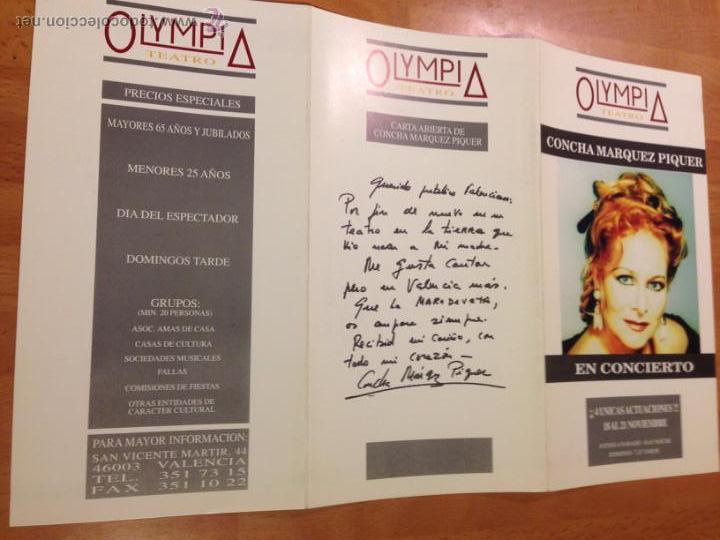 www.todocoleccion.net
OLYMPIA
TEATRO
PRECIOS ESPECIALES
MAYORES 65 AÑOS Y JUBILADOS
MENORES 25 AÑOS
DIA DEL ESPECTADOR
DOMINGOS TARDE
GRUPOS:
(MIN. 20 PERSONAS)
ASOC. AMAS DE CASA
CASAS DE CULTURA
SOCIEDADES MUSICALES
FALLAS
COMISIONES DE FIESTAS
OTRAS ENTIDADES DE
CARACTER CULTURAL
PARA MAYOR INFORMACION:
SAN VICENTE MARTIR, 44
46003 VALENCIA
TEL. 351 73 15
FAX 351 10 22
OLYMPIA
TEATRO
CARTA ABIERTA DE
CONCHA MARQUEZ PIQUER
Querido publico Valenciano:
Por fin de nuevo en un
teatro en la tierra que
vio nacer a mi madre.
Me gusta cantar
pero en Valencia más.
Que la MAREDEVETA,
os ampare siempre.
Recibid mi cariño, con
todo mi corazón -
Concha Márquez Piquer
OLYMPIA
TEATRO
CONCHA MARQUEZ PIQUER
EN CONCIERTO
¡¡ 4 UNICAS ACTUACIONES !!
18 AL 21 NOVIEMBRE